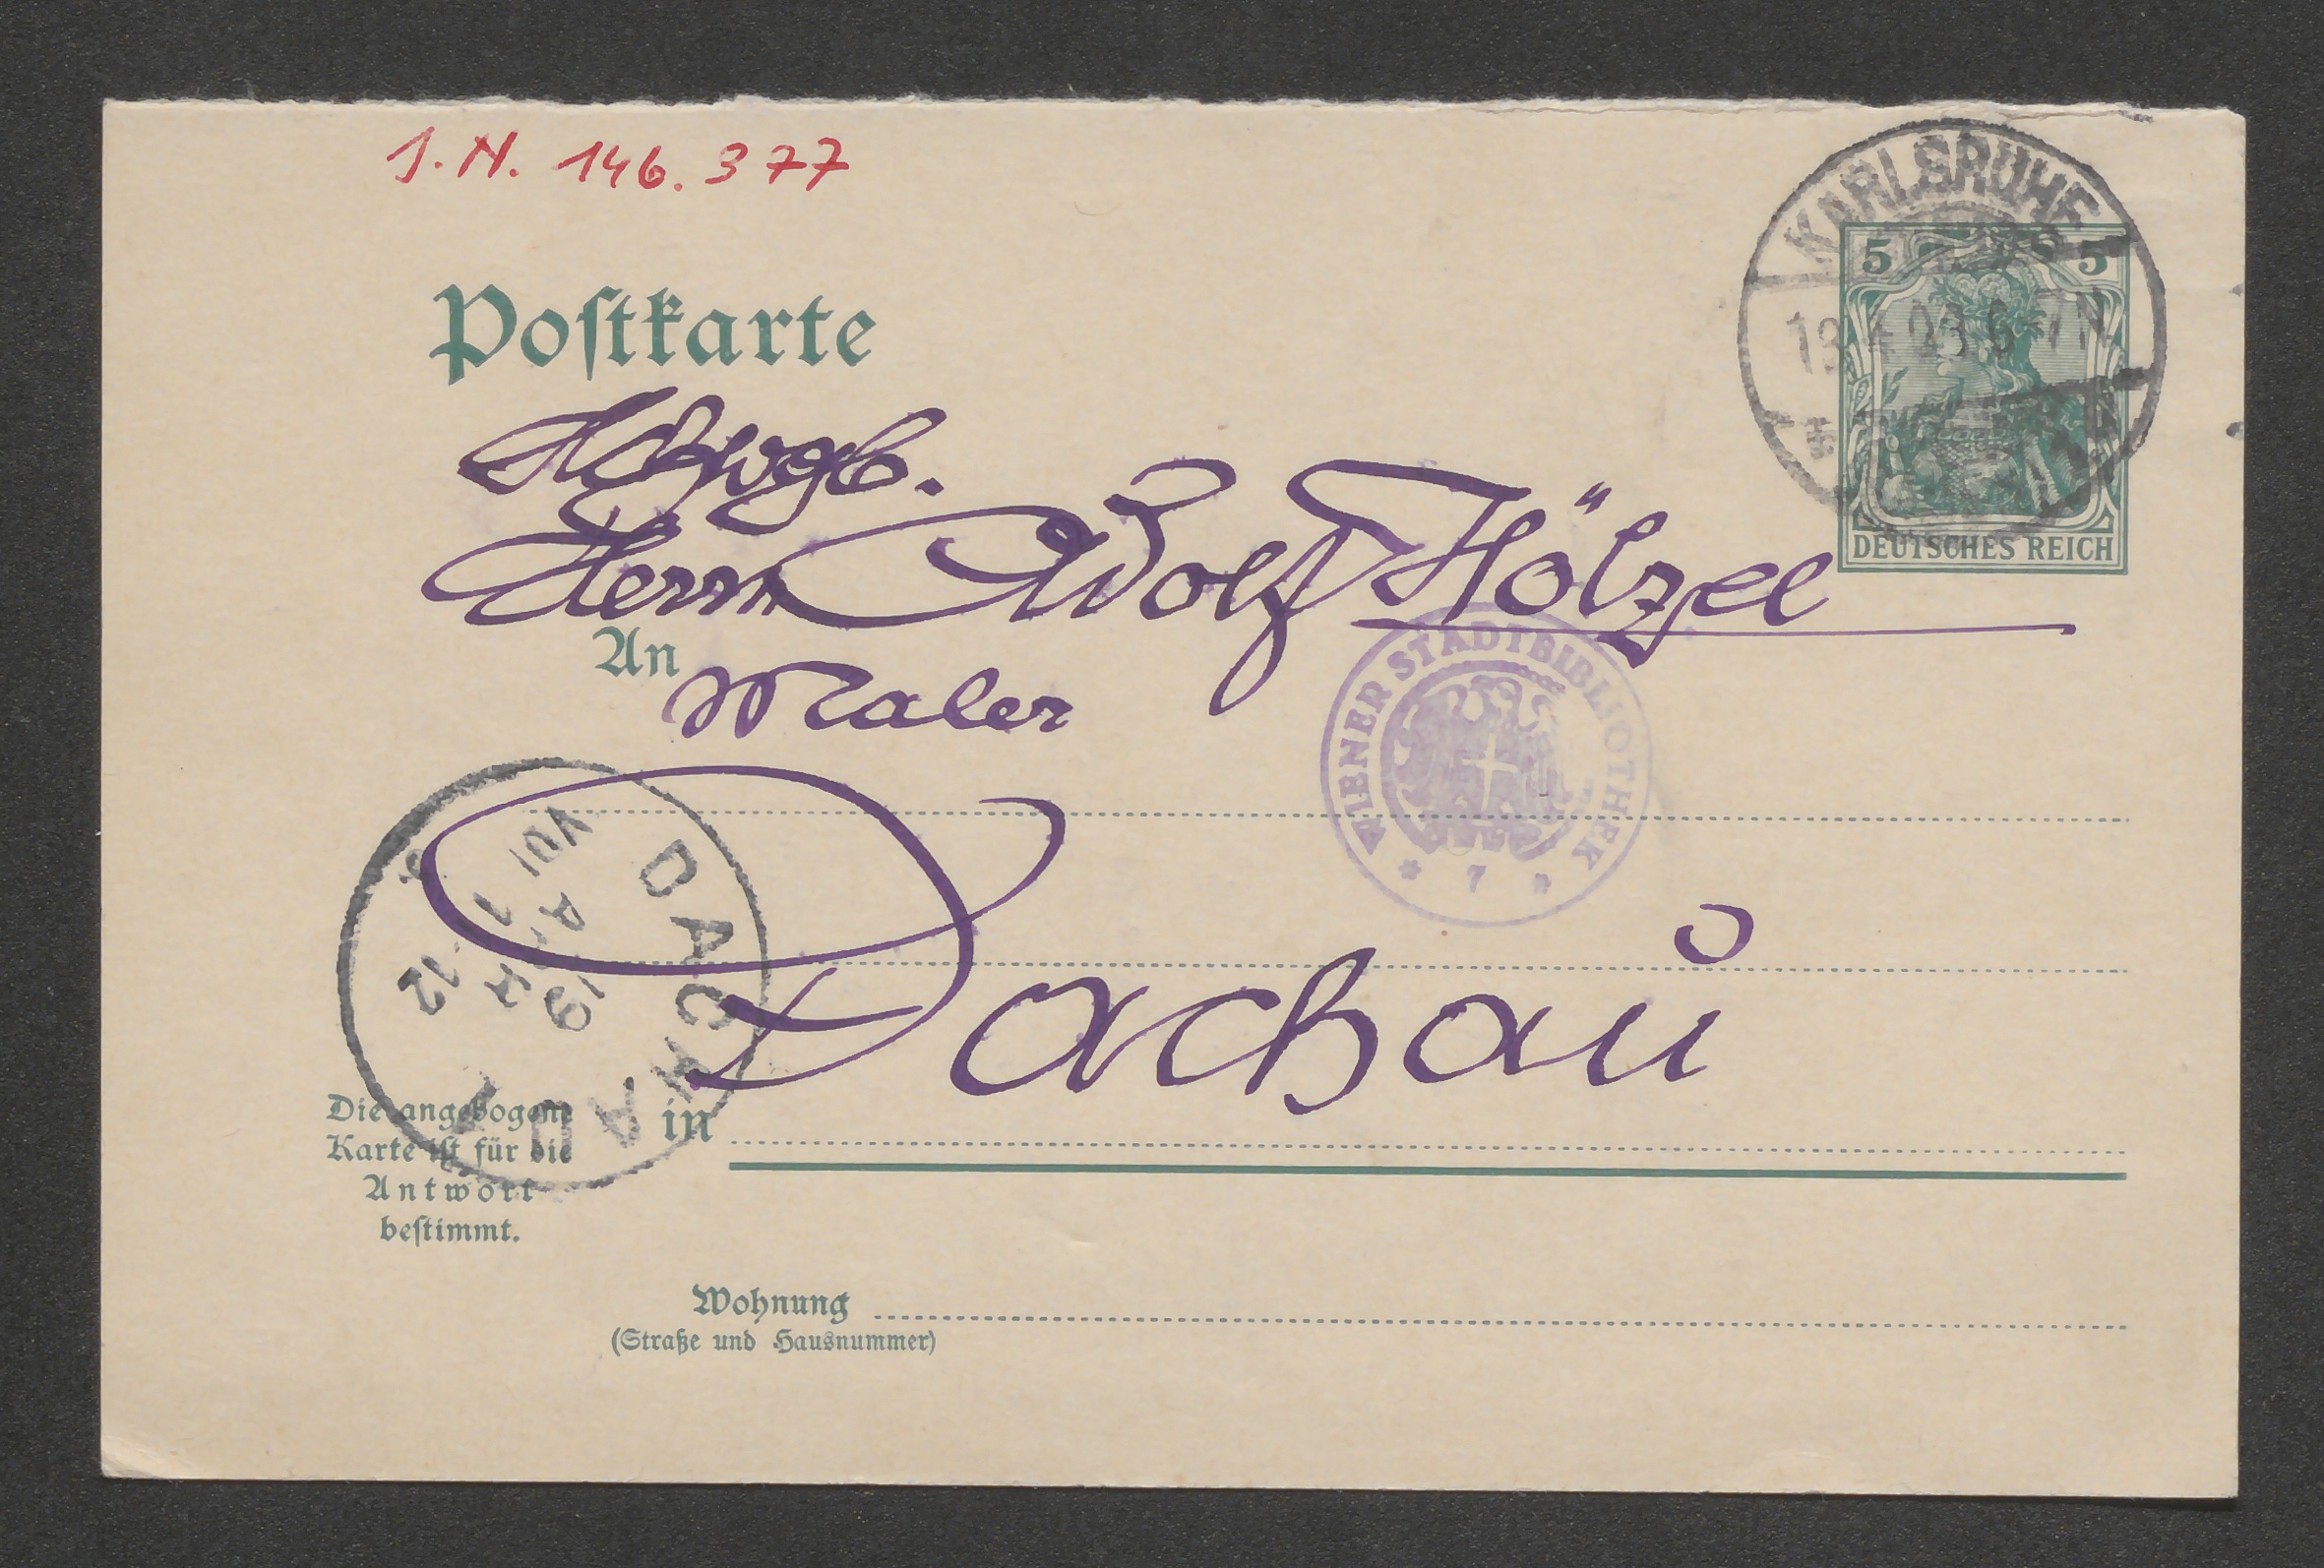 J.N. 146.377
KARLSRUHE
5 5
6-7N
DEUTSCHES REICH
Postkarte
Hchwgb.
Herrn Adolf Hölzel
An
Maler
WIENER STADTBIBLIOTHEK
* 7 *
DACHAU
VORM
19
12
Dachau
in
Die angebogene
Karte ist für die
Antwort
bestimmt.
Wohnung
(Straße und Hausnummer)